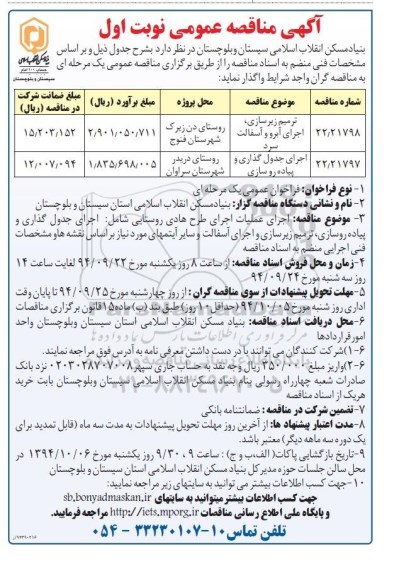 آگهی مناقصه عمومی نوبت اول
بنیادمسکن انقلاب اسلامی سیستان وبلوچستان در نظر دارد بشرح جدول ذیل و بر اساس
مشخصات فنی منضم به اسناد مناقصه را از طریق برگزاری مناقصه عمومی یک مرحله ای
به مناقصه گران واجد شرایط واگذار نماید:
شماره مناقصه موضوع مناقصه محل پروژه مبلغ برآورد (ریال) مبلغ ضمانت شرکت در مناقصه (ریال)
۲۲/۲۱۷۹۸ ترمیم زیرسازی، اجرای آبرو و آسفالت سرد روستای دن زیرک شهرستان فنوج ۲/۹۰۱/۰۵۰/۷۱۱ ۱۵/۲۰۳/۱۵۲
۲۲/۲۱۷۹۷ اجرای جدول گذاری و پیاده روسازی روستای دریدر شهرستان سراوان ۱/۸۳۵/۶۹۸/۰۰۵ ۱۲/۰۰۷/۰۹۴
۱- نوع فراخوان: فراخوان عمومی یک مرحله ای
۲- نام و نشانی دستگاه مناقصه گزار: بنیادمسکن انقلاب اسلامی استان سیستان و بلوچستان
۳- موضوع مناقصه: اجرای عملیات اجرای طرح هادی روستایی شامل: اجرای جدول گذاری و
پیاده روسازی، ترمیم زیرسازی و اجرای آسفالت و سایر آیتمهای مورد نیاز بر اساس نقشه ها و مشخصات
فنی اجرایی منضم به اسناد مناقصه
۴- زمان و محل فروش اسناد مناقصه: از ساعت ۸ روز یکشنبه مورخ ۹۴/۰۹/۲۲ لغایت ساعت ۱۴
روز سه شنبه مورخ ۹۴/۰۹/۲۴
۵- مهلت تحویل پیشنهادات از سوی مناقصه گران: از روز چهارشنبه مورخ ۹۴/۰۹/۲۵ تا پایان وقت
اداری روز شنبه مورخ ۹۴/۱۰/۰۵ (حداقل ۱۰ روز) طبق بند (ب) ماده ۱۵ قانون برگزاری مناقصات
۶- محل دریافت اسناد مناقصه: بنیاد مسکن انقلاب اسلامی استان سیستان وبلوچستان واحد
امور قراردادها
۶-۱) شرکت کنندگان می توانند با در دست داشتن معرفی نامه به آدرس فوق مراجعه نمایند.
۶-۲) واریز مبلغ ۳۵۰/۰۰۰ ریال وجه نقد به حساب جاری سپهر نزد بانک
صادرات شعبه چهارراه رسولی بنام بنیاد مسکن انقلاب اسلامی سیستان وبلوچستان بابت خرید
هریک از اسناد مناقصه
۷- تضمین شرکت در مناقصه: ضمانتنامه بانکی
۸- مدت اعتبار پیشنهاد ها: از آخرین روز مهلت تحویل پیشنهادات به مدت سه ماه (قابل تمدید برای
یک دوره سه ماهه دیگر) معتبر باشد.
۹- تاریخ بازگشایی پاکات (الف، ب و ج): ساعت ۹/۳۰ روز یکشنبه مورخ ۱۳۹۴/۱۰/۰۶ در
محل سالن جلسات حوزه مدیرکل بنیاد مسکن انقلاب اسلامی استان سیستان و بلوچستان
۱۰- جهت کسب اطلاعات بیشتر می توانید به سایتهای زیر مراجعه نمایید:
جهت کسب اطلاعات بیشتر میتوانید به سایتهای sb.bonyadmaskan.ir
و پایگاه ملی اطلاع رسانی مناقصات http://iets.mporg.ir مراجعه فرمایید.
تلفن تماس ۱۰-۳۳۲۳۰۱۰۷ - ۰۵۴